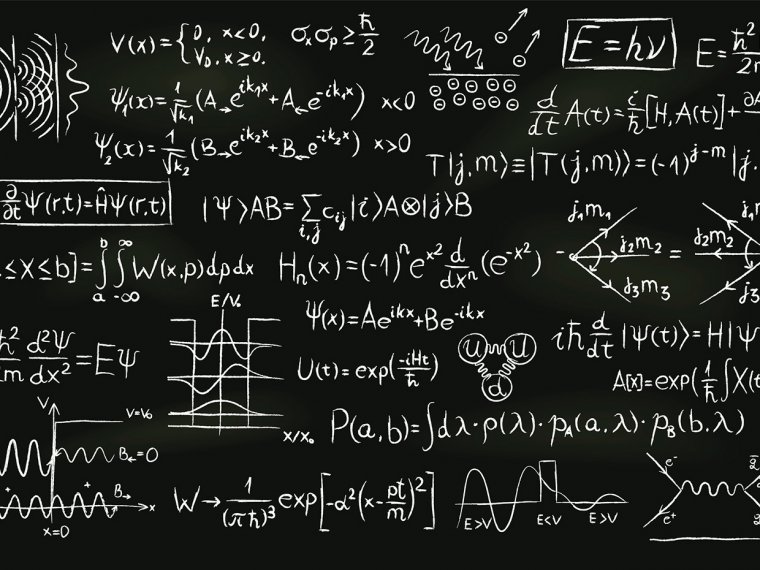 V(x) = { 0, x<0,
V₀, x≥0.
σₓσₚ ≥ ħ/2
E = hν
E = ħ²
ψ₁(x) = 1/√k₁ (A→e^{ik₁x} + A←e^{-ik₁x}) x<0
d/dt A(t) = i/ħ [H, A(t)] + ∂A
ψ₂(x) = 1/√k₂ (B→e^{ik₂x} + B←e^{-ik₂x}) x>0
T|j,m⟩ ≡ |T(j,m)⟩ = (-1)^{j-m} |j,
∂/∂t Ψ(r,t) = ĤΨ(r,t)
|Ψ⟩AB = ∑_{i,j} c_{ij} |i⟩A⊗|j⟩B
j₁m₁
j₂m₂ = j₂m₂
j₃m₃
≤X≤b] = ∫_a^b ∫_{-∞}^{∞} W(x,p)dpdx
Hₙ(x) = (-1)ⁿ e^{x²} d/dxⁿ (e^{-x²})
E/V₀
Ψ(x) = Ae^{ikx} + Be^{-ikx}
ħ²/m d²Ψ/dx² = EΨ
U(t) = exp(-iHt/ħ)
u u
d
iħ d/dt |Ψ(t)⟩ = H|Ψ
A[x] = exp(1/ħ ∫X(t
V
V=V₀
x/x₀
P(a,b) = ∫dλ·ρ(λ)·p_A(a,λ)·p_B(b,λ)
B←=0
B→
x
x=0
W → 1/(πħ)³ exp[-α²(x - pt/m)²]
E>V E<V E>V
e⁻
e⁺